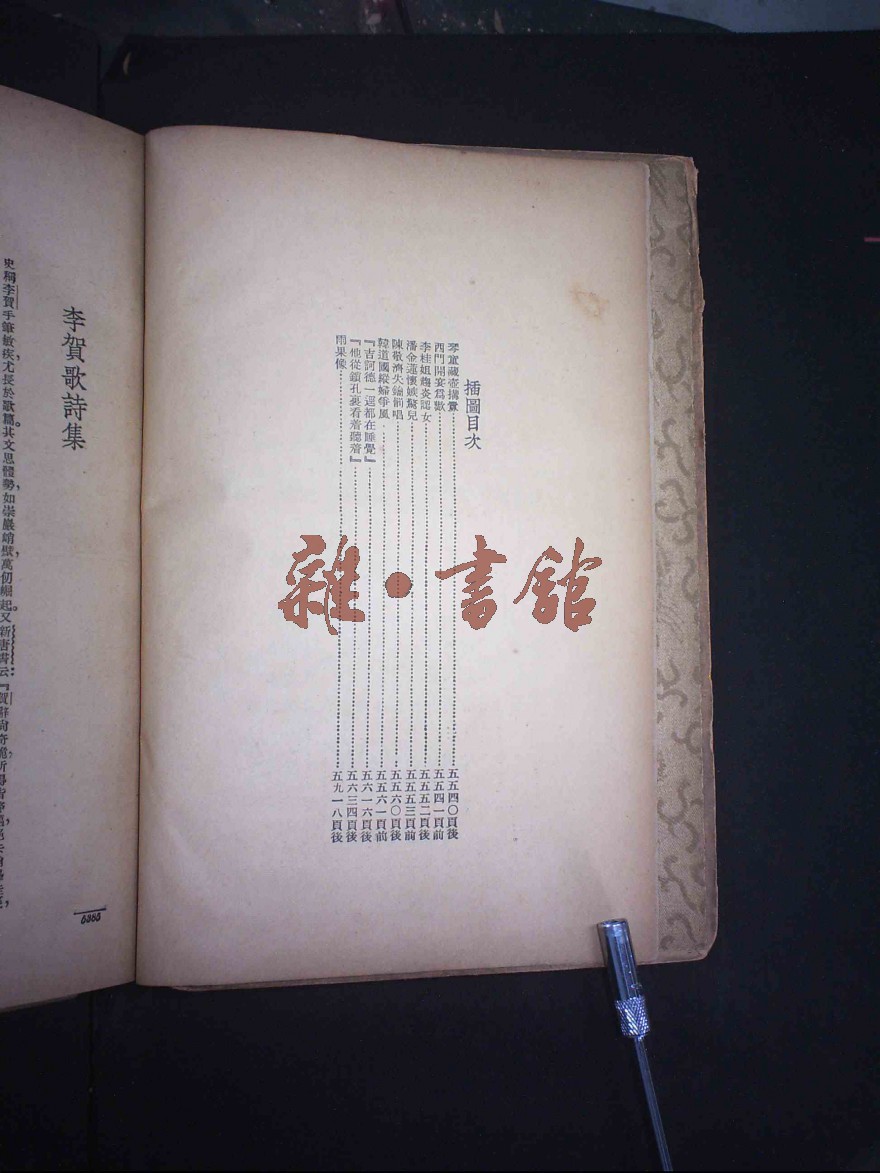 插圖目次
琴童藏壺搆釁……五五四〇頁後
西門開宴爲歡……五五四一頁前
李桂姐趨炎認女……五五五二頁後
潘金蓮懷嫉驚兒……五五五三頁前
陳敬濟失鑰罰唱……五五六〇頁後
韓道國縱婦爭風……五五六一頁前
『吉訶德一逕都在睡覺』……五六一六頁後
『他從鎖孔裏看着聽着』……五六三四頁後
雨果像……五九一八頁後
李賀歌詩集
史稱李賀手筆敏疾尤長於歌篇。其文思體勢,如崇巖峭壁,萬仞崛起。又新唐書云『賀辭尚奇詭,所得皆
5365
雜·書館